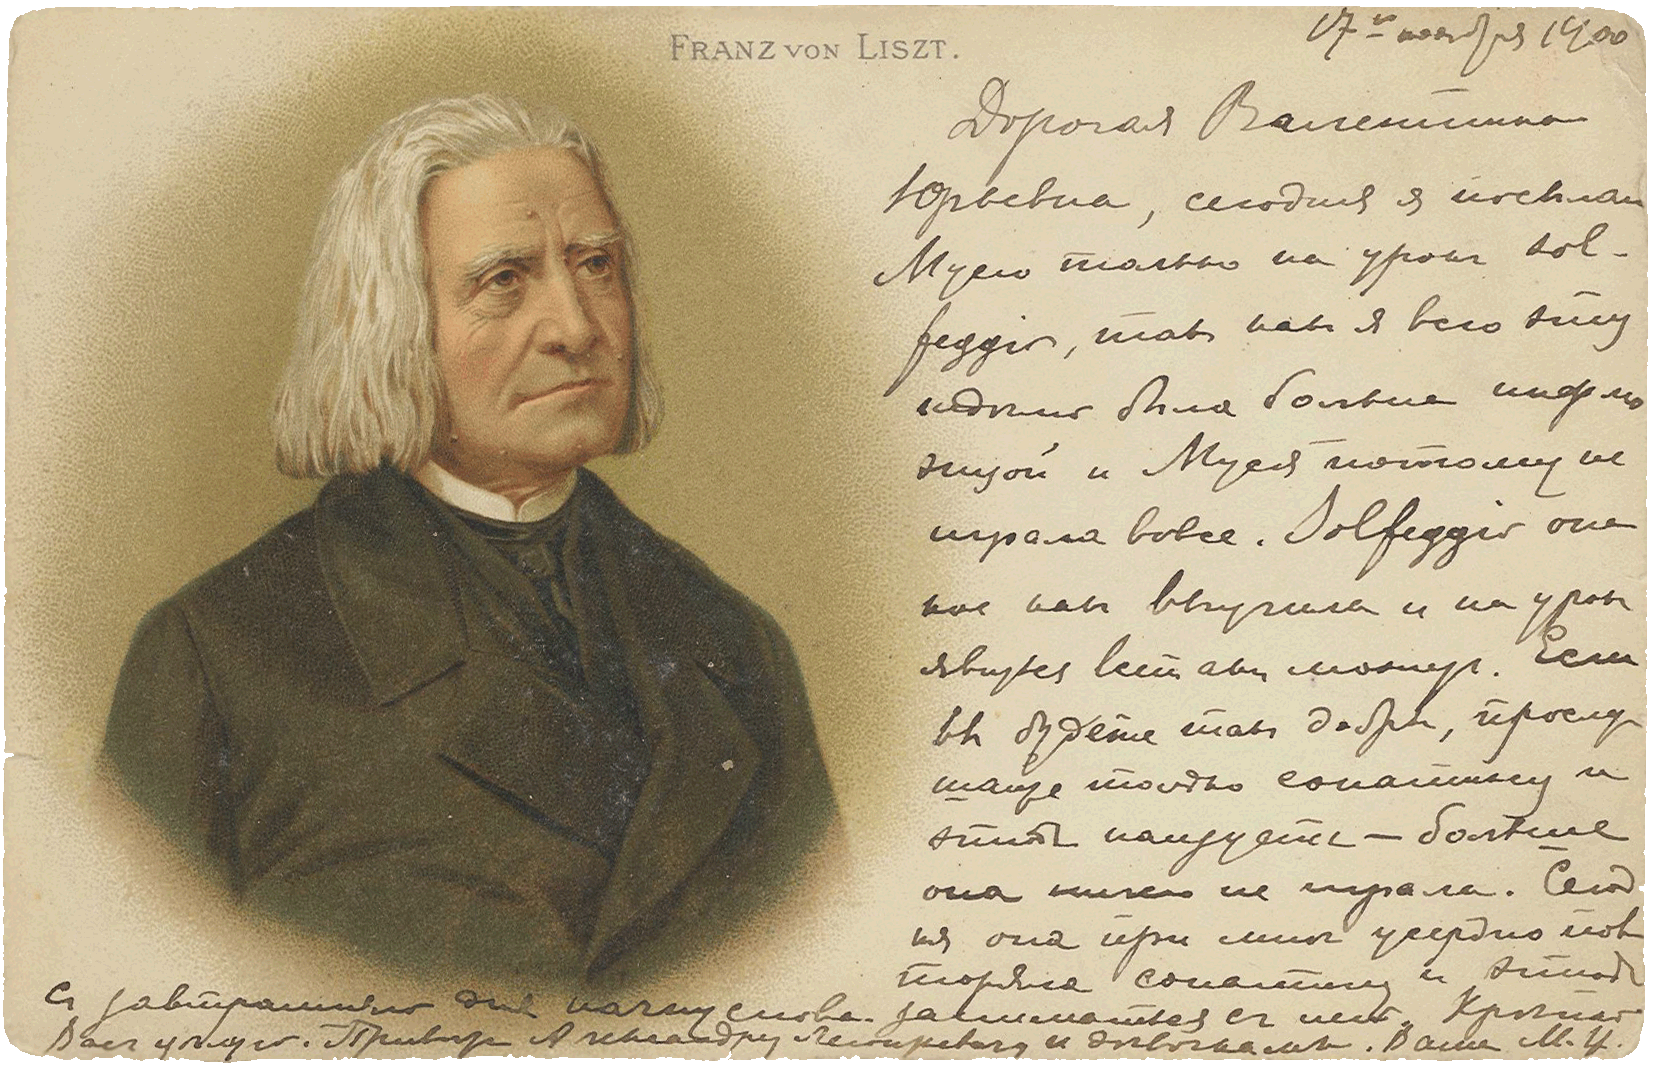 FRANZ VON LISZT.
17го ноября 1900
Дорогая Валентина
Юрьевна, сегодня я посылаю
Мусю только на урокъ sol-
feggio, такъ какъ я всю эту
недѣлю была больна инфлю
энцой и Муся потому не
играла вовсе. Solfeggio она
кое какъ выучила и на урокъ
явится
Если
вы будете такъ добры, прослу
шайте только сонатину и
этюдъ наизусть — больше
она ничего не играла. Сегод
ня она при мнѣ усердно пов
торяла сонатину и этюдъ
съ завтрашняго дня начну снова заниматься съ нею. Крѣпко
Васъ цѣлую. Привѣтъ Александру и домочадцамъ. Ваша М. Ц.